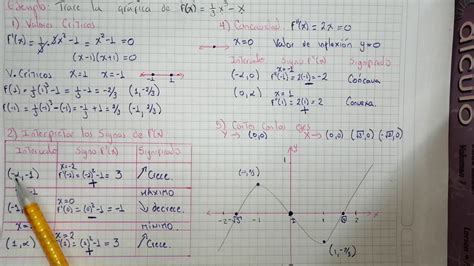 Ejemplo: Trace la gráfica de f(x) = 1/3 x³ - x
1) Valores Críticos
f'(x) = 1/3 · 3x² - 1 = x² - 1 = 0
(x-1)(x+1) = 0
V. Críticos x = 1 x = -1
-1 1
f(1) = 1/3 (1)³ - 1 = -2/3 (1, -2/3)
f(-1) = 1/3 (-1)³ - (-1) = -1/3 + 1 = 2/3 (-1, 2/3)
2) Interpretar los Signos de f'(x)
Intervalo Signo f'(x) Significado
(-∞, -1) x = -2 f'(-2) = (-2)² - 1 = 3 + Crece.
-1 MÁXIMO
(-1, x = 0 f'(0) = (0)² - 1 = -1 decrece.
x = MÍNIMO
(1, ∞) x = 2 f'(2) = (2)² - 1 = 3 + Crece
4) Concavidad f''(x) = 2x = 0
x = 0 Valor de inflexión y = 0
Intervalo Signo f''(x) Significado
(-∞, 0) x = -1 f''(-1) = 2(-1) = -2 Cóncava.
(0, ∞) x = 1 f''(1) = 2(1) = 2 + Convexa.
5) Cortes con los ejes
Y → (0,0) X → (0,0) (√3, 0) (-√3, 0)
(-1, 2/3)
1
-2 -√3 -1 1 √3 2
-1
(1, -2/3)
álculo